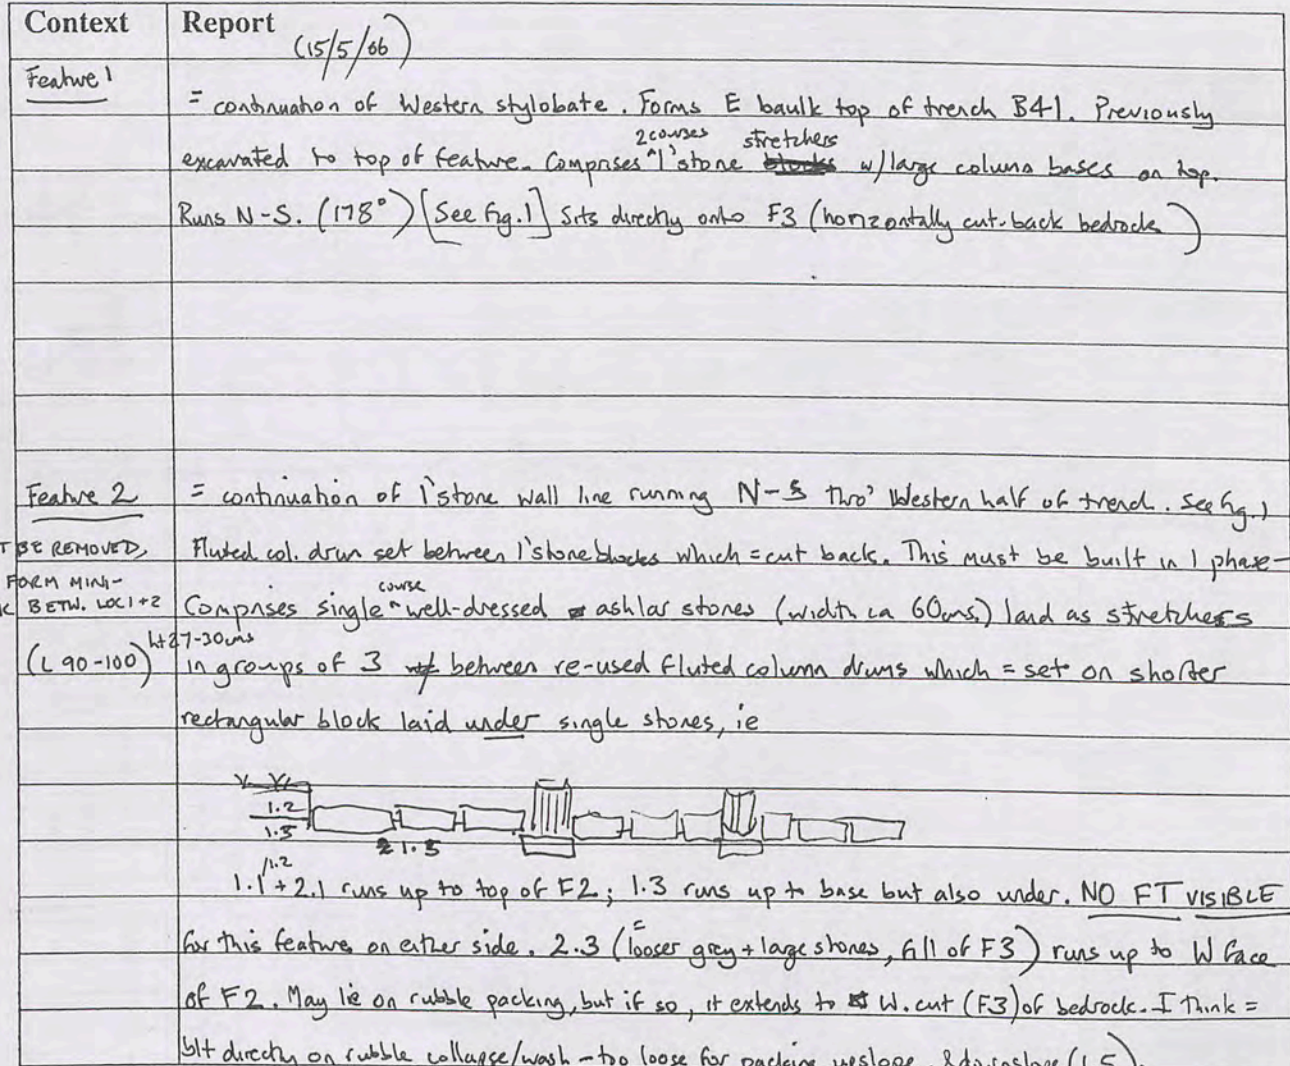 Context Report
(15/5/06)
Feature 1
= continuation of Western stylobate. Forms E baulk top of trench B41. Previously
excavated to top of feature. Comprises ^2 courses l'stone stretchers w/large column bases on top.
Runs N-S. (178°) [See Fig.1] Sits directly onto F3 (horizontally cut-back bedrock)
Feature 2
= continuation of l'stone wall line running N-S thro' Western half of trench. See fig. 1
T BE REMOVED,
Fluted col. drum set between l'stone blocks which = cut back. This must be built in 1 phase-
FORM MINI-
BETW. LOC 1+2
Comprises single ^course well-dressed ashlar stones (width ca 60cms.) laid as stretchers
(L 90-100) ht 27-30cms
in groups of 3 between re-used fluted column drums which = set on shorter
rectangular block laid under single stones, ie
1.2
1.3
1.3
1.1 /1.2 + 2.1 runs up to top of F2; 1.3 runs up to base but also under. NO FT VISIBLE
for this feature on either side. 2.3 (= looser grey + large stones, fill of F3) runs up to W face
of F2. May lie on rubble packing, but if so, it extends to W. cut (F3) of bedrock. I think =
blt directly on rubble collapse/wash - too loose for packing upslope, & downslope (1.5).